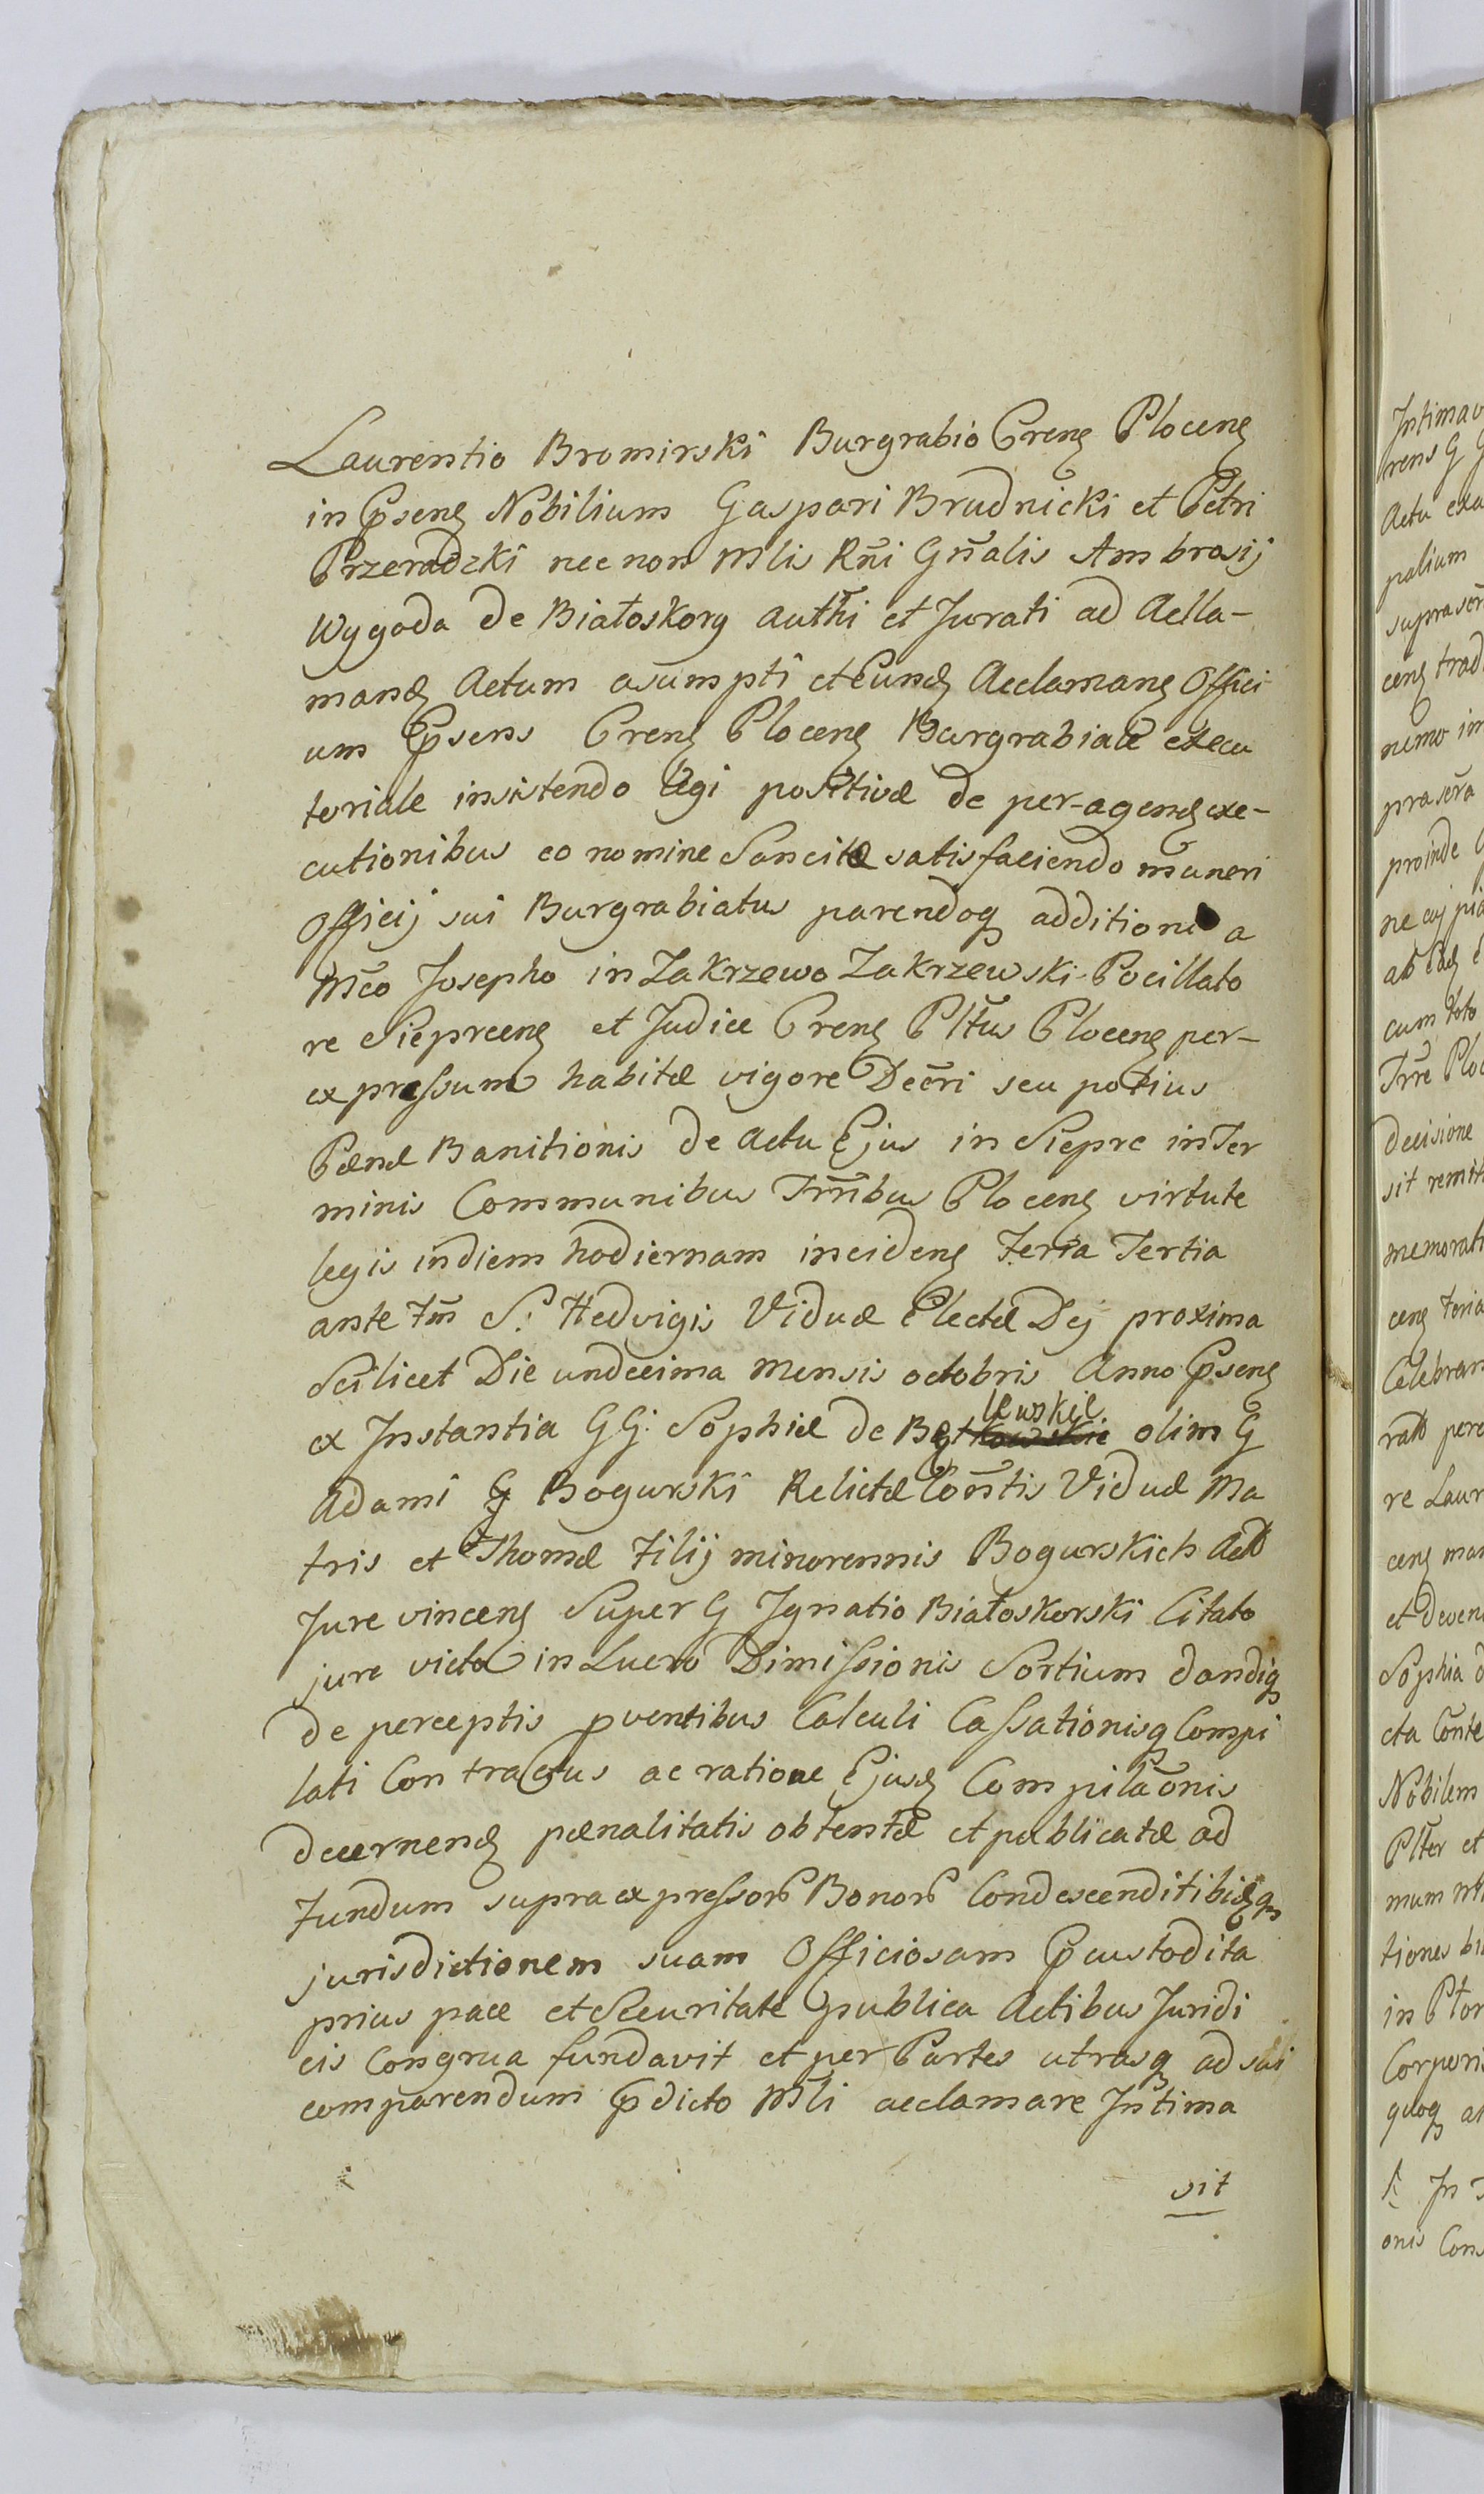 Laurentio Bromirski Burgrabio Crenꝫ Plocenꝫ
in Psenꝫ Nobilium Gaspari Brudnicki et Petri
Przeradzki nec non Mlis Rñi Gñalis Ambrosij
Wygoda de Białoskory Auth̃i et Jurati ad Acla-
mandꝫ Actum asumpti et Eundꝫ Acclamanꝫ Offici
um Psens Crenꝫ Plocenꝫ Burgrabiale execu
toriale insistendo legi positivæ de per-agendꝫ exe-
cutionibus eo nomine Sancitæ satisfaciendo muneri
Officij sui Burgrabiatus parendoq additioni a
Mc̃o Josepho in Zakrzewo Zakrzewski Pocillato
re Sieprcenꝫ et Judice Crenꝫ Pltũs Plocenꝫ per-
expressum habitæ vigore Dec̃ri seu potius
Pænæ Banitionis de Actu Ejus in Sieprc in Ter
minis Communibus Trr̃ibus Plocenꝫ virtute
legis in diem hodiernam incidenꝫ Feria Tertia
ante Fm̃ S: Hedvigis Viduæ Electæ Dej proxima
Scilicet Die undecima Mensis octobris Anno Psenꝫ
ex Instantia GG: Sophiæ de Bętkowskie lewskie olim G
Adami G Bogurski Relictæ Coñtis Viduæ Ma
tris et Thomæ Filij minorennis Bogurskich Act
Jure vincenꝫ Super G Ignatio Białoskorski Citato
jure victo in Lucro Dimissionis Sortium dandiq
de perceptis pventibus Calculi Cassationisq Compi
lati Contractus ac ratione Ejusꝫ Compilaõnis
decernendꝫ pænalitatis obtentæ et publicatæ ad
Fundum supra expressor Bonor Condescendit ibidꝫq
jurisdictionem suam Officiosam Pcustodita
prius pace et Securitate publica Actibus Juridi
cis Congrua fundavit et per Partes utrasq ad sui
comparendum Pdicto Mli acclamare Intima
vit